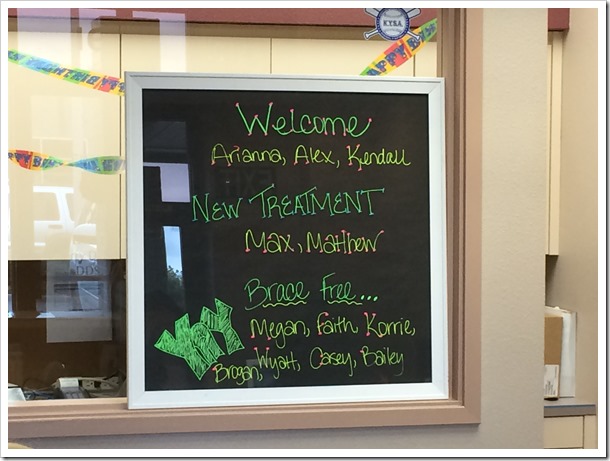 K.Y.B.A.
Welcome
Arianna, Alex, Kendall
NEW TREATMENT
Max, Matthew
Brace Free...
YAY
Megan, Faith Korrie,
Brogan, Wyatt, Casey, Bailey